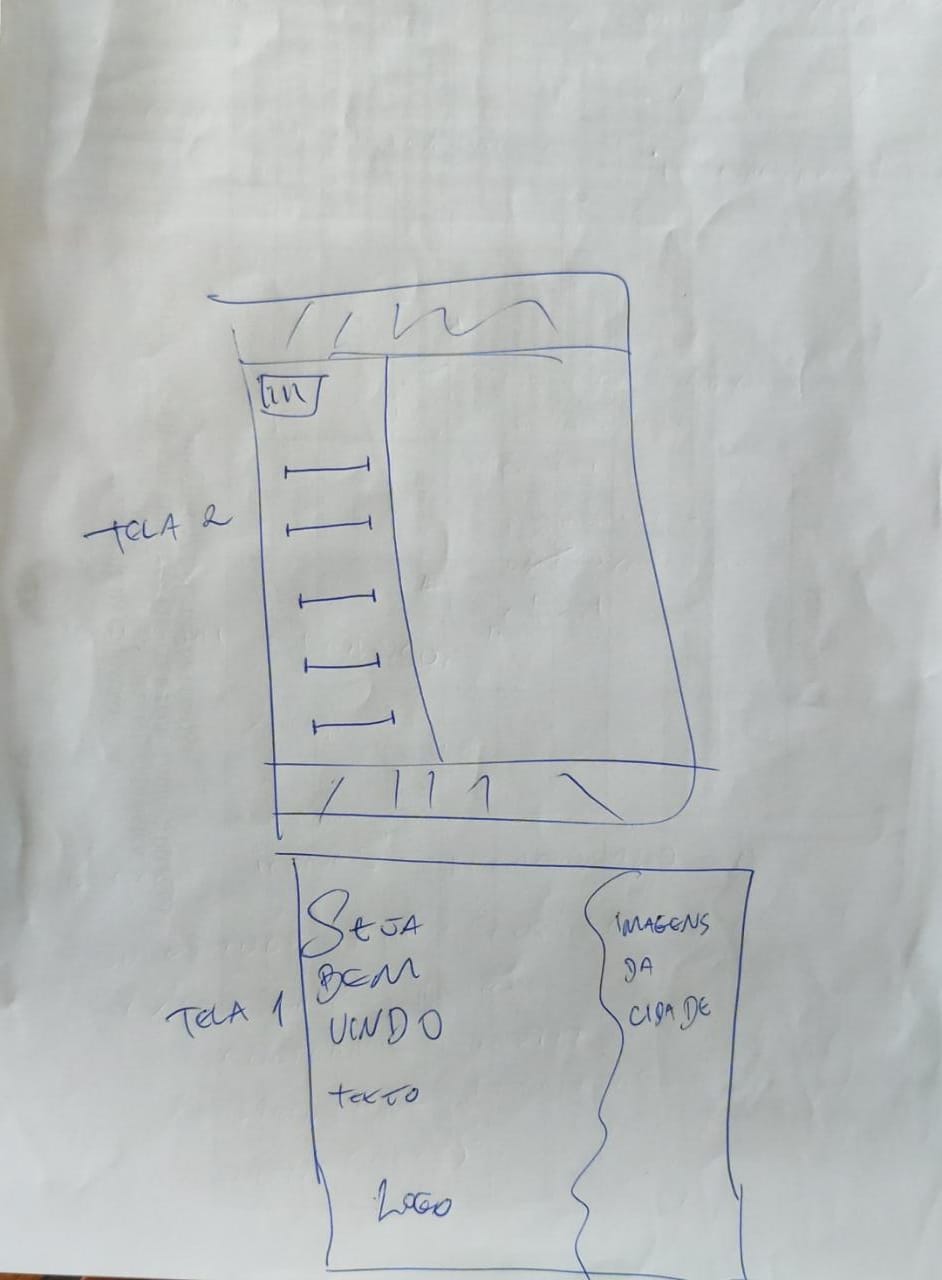 TELA 2
TELA 1
SEJA
BEM
VINDO
TEXTO
LOGO
IMAGENS
DA
CIDADE